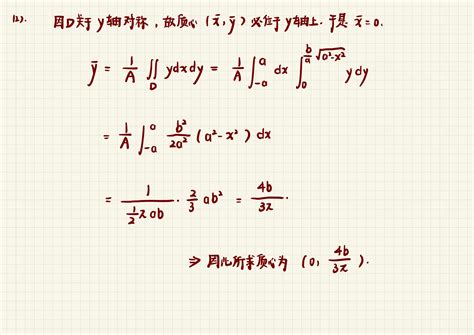 (2). 因D关于y轴对称，故质心(x̄, ȳ)必位于y轴上. 于是 x̄=0.
ȳ = 1/A ∬_D ydxdy = 1/A ∫_{-a}^{a} dx ∫_0^{b/a √(a²-x²)} ydy
= 1/A ∫_{-a}^{a} b²/2a² (a²-x²) dx
= 1/(1/2 πab) · 2/3 ab² = 4b/3π.
⇒ 因此所求质心为 (0, 4b/3π).